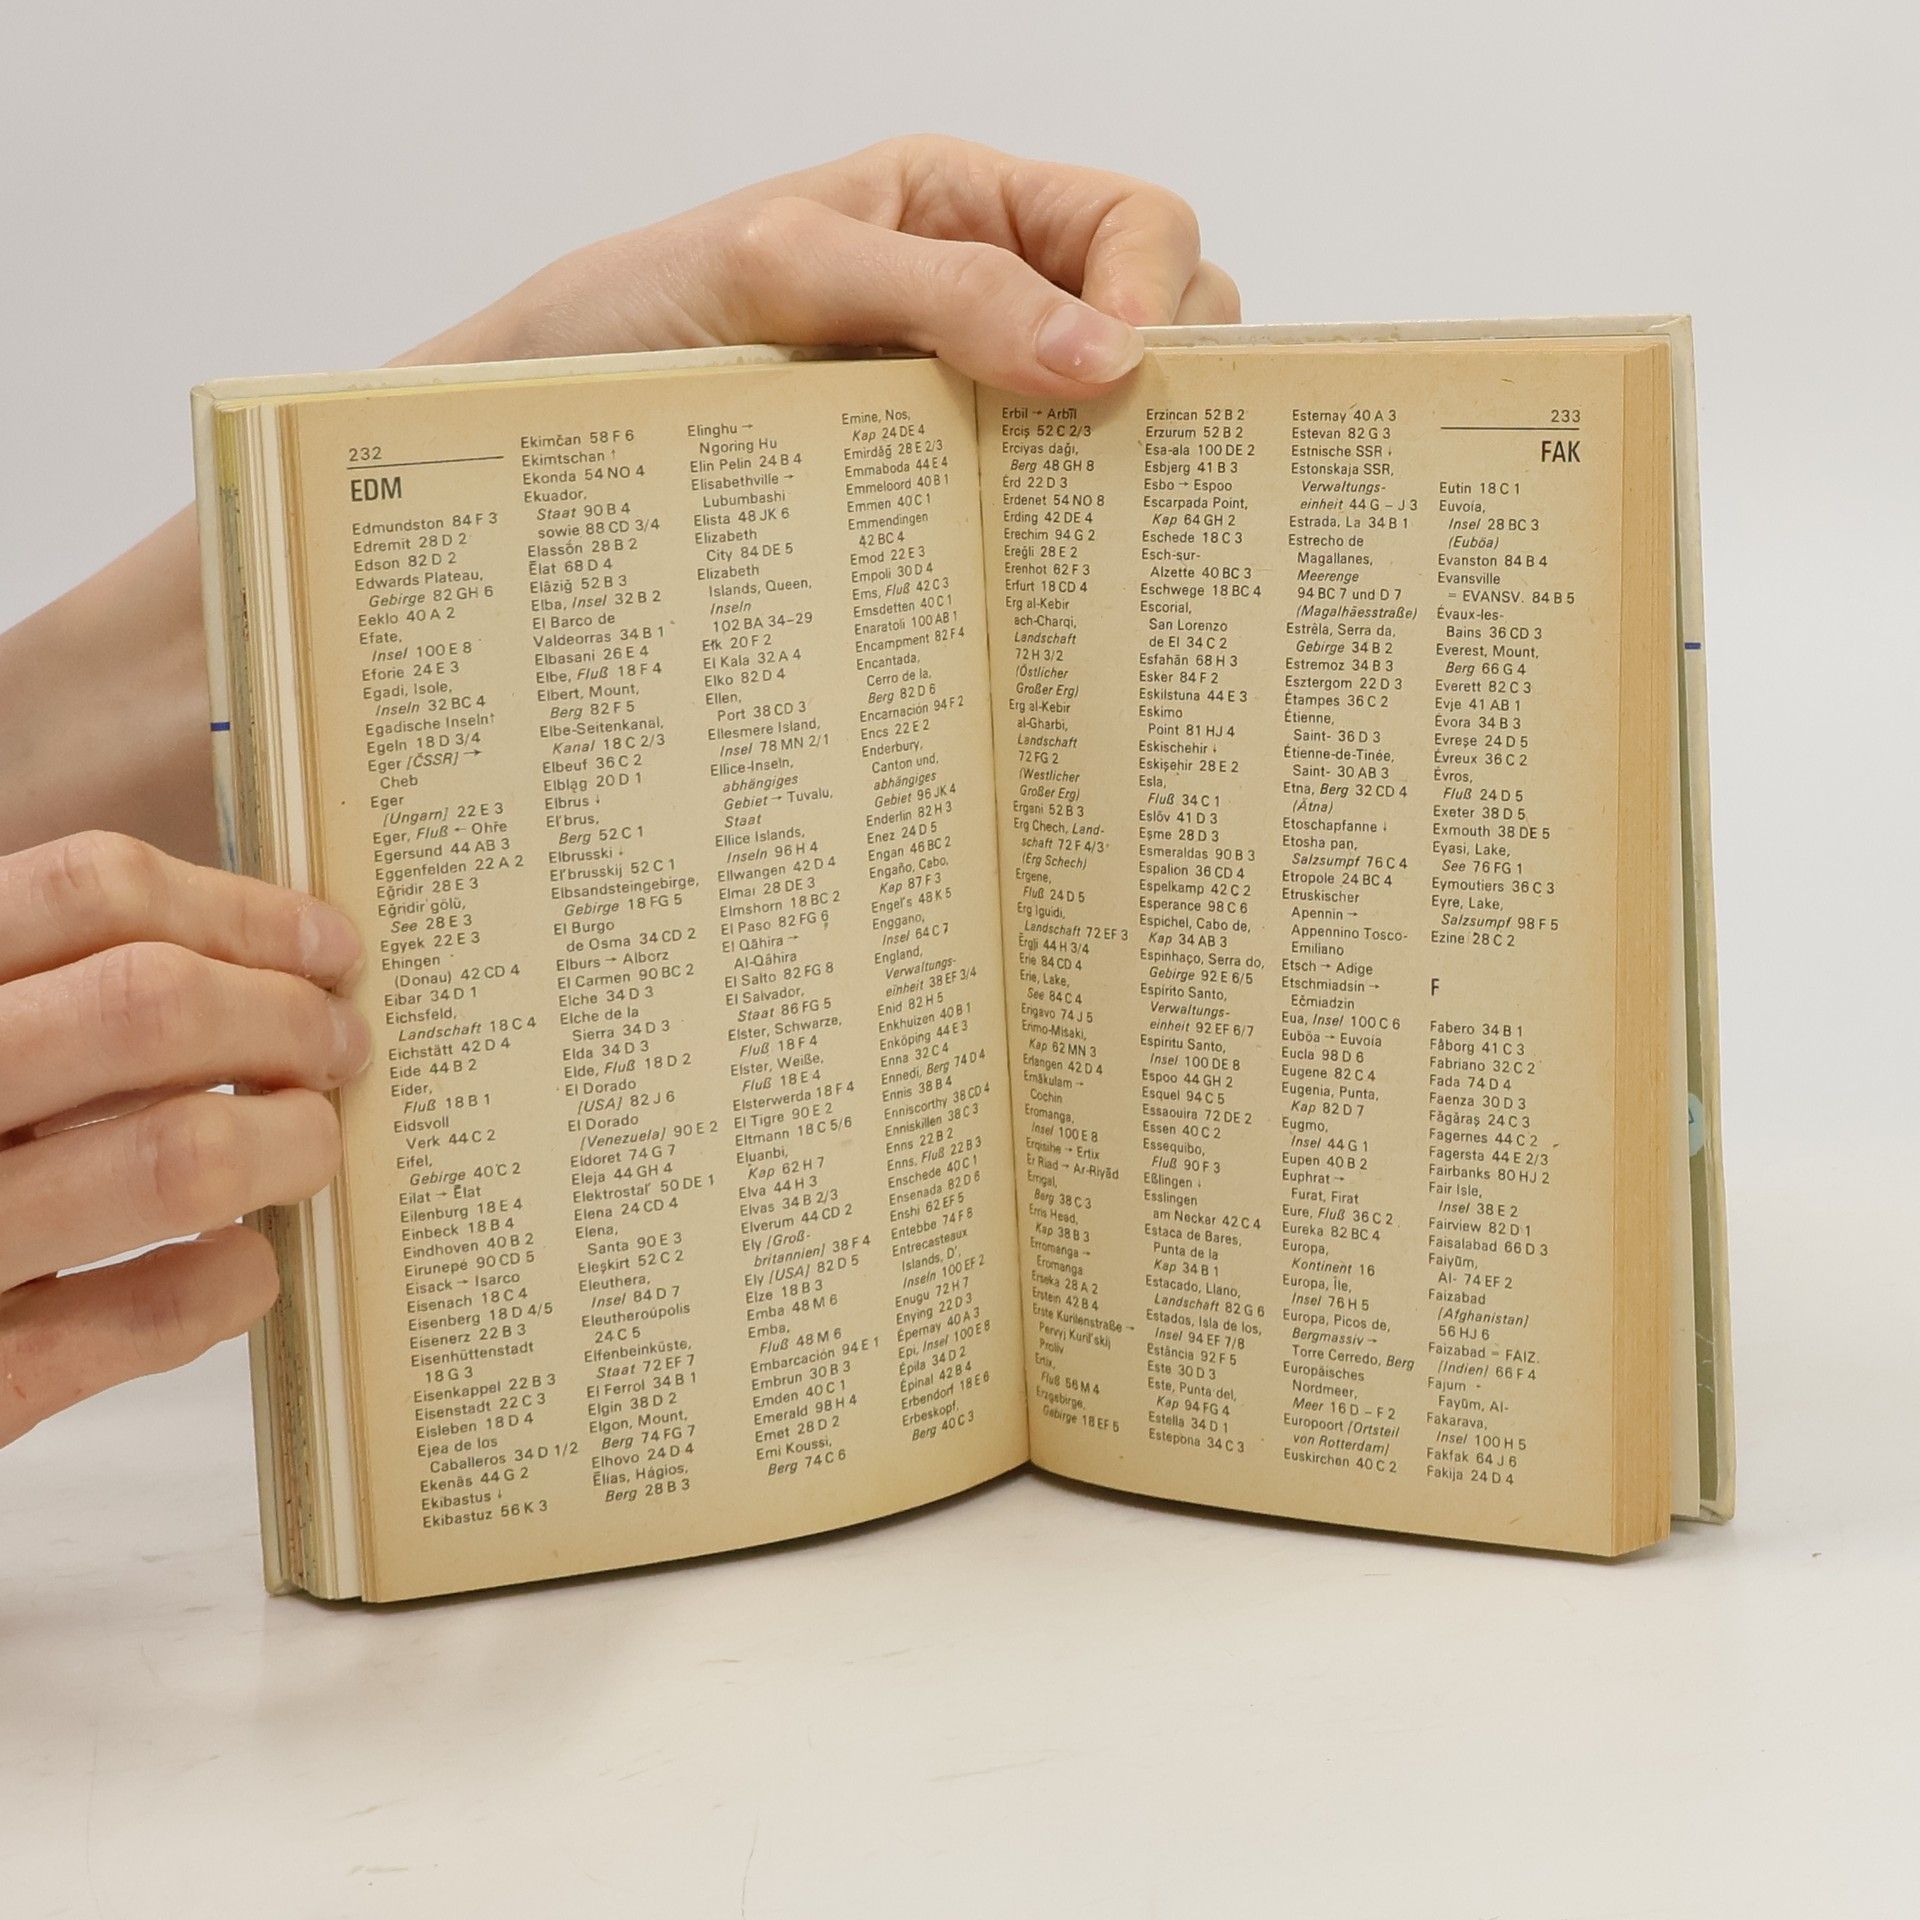 232
EDM
Edmundston 84 F 3
Edremit 28 D 2
Edson 82 D 2
Edwards Plateau,
Gebirge 82 GH 6
Eeklo 40 A 2
Efate,
Insel 100 E 8
Eforie 24 E 3
Egadi, Isole,
Inseln 32 BC 4
Egadische Inseln↑
Egeln 18 D 3/4
Eger [ČSSR] →
Cheb
Eger
[Ungarn] 22 E 3
Eger, Fluß ← Ohře
Egersund 44 AB 3
Eggenfelden 22 A 2
Eğridir 28 E 3
Eğridir gölü,
See 28 E 3
Egyek 22 E 3
Ehingen
(Donau) 42 CD 4
Eibar 34 D 1
Eichsfeld,
Landschaft 18 C 4
Eichstätt 42 D 4
Eide 44 B 2
Eider,
Fluß 18 B 1
Eidsvoll
Verk 44 C 2
Eifel,
Gebirge 40 C 2
Eilat → Ēlat
Eilenburg 18 E 4
Einbeck 18 B 4
Eindhoven 40 B 2
Eirunepé 90 CD 5
Eisack → Isarco
Eisenach 18 C 4
Eisenberg 18 D 4/5
Eisenerz 22 B 3
Eisenhüttenstadt
18 G 3
Eisenkappel 22 B 3
Eisenstadt 22 C 3
Eisleben 18 D 4
Ejea de los
Caballeros 34 D 1/2
Ekenäs 44 G 2
Ekibastus ↓
Ekibastuz 56 K 3
Ekimčan 58 F 6
Ekimtschan ↑
Ekonda 54 NO 4
Ekuador,
Staat 90 B 4
sowie 88 CD 3/4
Elassōn 28 B 2
Ēlat 68 D 4
Elâziğ 52 B 3
Elba, Insel 32 B 2
El Barco de
Valdeorras 34 B 1
Elbasani 26 E 4
Elbe, Fluß 18 F 4
Elbert, Mount,
Berg 82 F 5
Elbe-Seitenkanal,
Kanal 18 C 2/3
Elbeuf 36 C 2
Elbląg 20 D 1
Elbrus ↓
El'brus,
Berg 52 C 1
Elbrusski ↓
El'brusskij 52 C 1
Elbsandsteingebirge,
Gebirge 18 FG 5
El Burgo
de Osma 34 CD 2
Elburs → Alborz
El Carmen 90 BC 2
Elche 34 D 3
Elche de la
Sierra 34 D 3
Elda 34 D 3
Elde, Fluß 18 D 2
El Dorado
[USA] 82 J 6
El Dorado
[Venezuela] 90 E 2
Eldoret 74 G 7
Eleja 44 GH 4
Elektrostal' 50 DE 1
Elena 24 CD 4
Elena,
Santa 90 E 3
Eleşkirt 52 C 2
Eleuthera,
Insel 84 D 7
Eleutheroúpolis
24 C 5
Elfenbeinküste,
Staat 72 EF 7
El Ferrol 34 B 1
Elgin 38 D 2
Elgon, Mount,
Berg 74 FG 7
Elhovo 24 D 4
Ēlias, Hágios,
Berg 28 B 3
Elinghu →
Ngoring Hu
Elin Pelin 24 B 4
Elisabethville →
Lubumbashi
Elista 48 JK 6
Elizabeth
City 84 DE 5
Elizabeth
Islands, Queen,
Inseln
102 BA 34–29
Ełk 20 F 2
El Kala 32 A 4
Elko 82 D 4
Ellen,
Port 38 CD 3
Ellesmere Island,
Insel 78 MN 2/1
Ellice-Inseln,
abhängiges
Gebiet → Tuvalu,
Staat
Ellice Islands,
Inseln 96 H 4
Ellwangen 42 D 4
Elmai 28 DE 3
Elmshorn 18 BC 2
El Paso 82 FG 6
El Qâhira →
Al-Qâhira
El Salto 82 FG 8
El Salvador,
Staat 86 FG 5
Elster, Schwarze,
Fluß 18 F 4
Elster, Weiße,
Fluß 18 E 4
Elsterwerda 18 F 4
El Tigre 90 E 2
Eltmann 18 C 5/6
Eluanbi,
Kap 62 H 7
Elva 44 H 3
Elvas 34 B 2/3
Elverum 44 CD 2
Ely [Groß-
britannien] 38 F 4
Ely [USA] 82 D 5
Elze 18 B 3
Emba 48 M 6
Emba,
Fluß 48 M 6
Embarcación 94 E 1
Embrun 30 B 3
Emden 40 C 1
Emerald 98 H 4
Emet 28 D 2
Emi Koussi,
Berg 74 C 6
Emine, Nos,
Kap 24 DE 4
Emirdâğ 28 E 2/3
Emmaboda 44 E 4
Emmeloord 40 B 1
Emmen 40 C 1
Emmendingen
42 BC 4
Emod 22 E 3
Empoli 30 D 4
Ems, Fluß 42 C 3
Emsdetten 40 C 1
Enaratoli 100 AB 1
Encampment 82 F 4
Encantada,
Cerro de la,
Berg 82 D 6
Encarnación 94 F 2
Encs 22 E 2
Enderbury,
Canton und,
abhängiges
Gebiet 96 JK 4
Enderlin 82 H 3
Enez 24 D 5
Engan 46 BC 2
Engaño, Cabo,
Kap 87 F 3
Engel's 48 K 5
Enggano,
Insel 64 C 7
England,
Verwaltungs-
einheit 38 EF 3/4
Enid 82 H 5
Enkhuizen 40 B 1
Enköping 44 E 3
Enna 32 C 4
Ennedi, Berg 74 D 4
Ennis 38 B 4
Enniscorthy 38 CD 4
Enniskillen 38 C 3
Enns 22 B 2
Enns, Fluß 22 B 3
Enschede 40 C 1
Ensenada 82 D 6
Enshi 62 EF 5
Entebbe 74 F 8
Entrecasteaux
Islands, D',
Inseln 100 EF 2
Enugu 72 H 7
Enying 22 D 3
Épernay 40 A 3
Epi, Insel 100 E 8
Épila 34 D 2
Épinal 42 B 4
Erbendorf 18 E 6
Erbeskopf,
Berg 40 C 3
Erbīl → Arbīl
Erciş 52 C 2/3
Erciyas dağı,
Berg 48 GH 8
Érd 22 D 3
Erdenet 54 NO 8
Erding 42 DE 4
Erechim 94 G 2
Ereğli 28 E 2
Erenhot 62 F 3
Erfurt 18 CD 4
Erg al-Kebir
ach-Charqi,
Landschaft
72 H 3/2
(Östlicher
Großer Erg)
Erg al-Kebir
al-Gharbi,
Landschaft
72 FG 2
(Westlicher
Großer Erg)
Ergani 52 B 3
Erg Chech, Land-
schaft 72 F 4/3
(Erg Schech)
Ergene,
Fluß 24 D 5
Erg Iguidi,
Landschaft 72 EF 3
Ērgļi 44 H 3/4
Erie 84 CD 4
Erie, Lake,
See 84 C 4
Erigavo 74 J 5
Erimo-Misaki,
Kap 62 MN 3
Erlangen 42 D 4
Ernākulam →
Cochin
Eromanga,
Insel 100 E 8
Erqisihe → Ertix
Er Riad → Ar-Riyāḍ
Errigal,
Berg 38 C 3
Erris Head,
Kap 38 B 3
Erromanga →
Eromanga
Erseka 28 A 2
Erstein 42 B 4
Erste Kurilenstraße →
Pervyj Kuril'skij
Proliv
Ertix,
Fluß 56 M 4
Erzgebirge,
Gebirge 18 EF 5
Erzincan 52 B 2
Erzurum 52 B 2
Esa-ala 100 DE 2
Esbjerg 41 B 3
Esbo → Espoo
Escarpada Point,
Kap 64 GH 2
Eschede 18 C 3
Esch-sur-
Alzette 40 BC 3
Eschwege 18 BC 4
Escorial,
San Lorenzo
de El 34 C 2
Esfahān 68 H 3
Esker 84 F 2
Eskilstuna 44 E 3
Eskimo
Point 81 HJ 4
Eskischehir ↓
Eskişehir 28 E 2
Esla,
Fluß 34 C 1
Eslöv 41 D 3
Eşme 28 D 3
Esmeraldas 90 B 3
Espalion 36 CD 4
Espelkamp 42 C 2
Esperance 98 C 6
Espichel, Cabo de,
Kap 34 AB 3
Espinhaço, Serra do,
Gebirge 92 E 6/5
Espírito Santo,
Verwaltungs-
einheit 92 EF 6/7
Espíritu Santo,
Insel 100 DE 8
Espoo 44 GH 2
Esquel 94 C 5
Essaouira 72 DE 2
Essen 40 C 2
Essequibo,
Fluß 90 F 3
Eßlingen ↓
Esslingen
am Neckar 42 C 4
Estaca de Bares,
Punta de la
Kap 34 B 1
Estacado, Llano,
Landschaft 82 G 6
Estados, Isla de los,
Insel 94 EF 7/8
Estância 92 F 5
Este 30 D 3
Este, Punta del,
Kap 94 FG 4
Estella 34 D 1
Estepona 34 C 3
Esternay 40 A 3
Estevan 82 G 3
Estnische SSR ↓
Estonskaja SSR,
Verwaltungs-
einheit 44 G – J 3
Estrada, La 34 B 1
Estrecho de
Magallanes,
Meerenge
94 BC 7 und D 7
(Magalhãesstraße)
Estrêla, Serra da,
Gebirge 34 B 2
Estremoz 34 B 3
Esztergom 22 D 3
Étampes 36 C 2
Étienne,
Saint- 36 D 3
Étienne-de-Tinée,
Saint- 30 AB 3
Etna, Berg 32 CD 4
(Ätna)
Etoschapfanne ↓
Etosha pan,
Salzsumpf 76 C 4
Etropole 24 BC 4
Etruskischer
Apennin →
Appennino Tosco-
Emiliano
Etsch → Adige
Etschmiadsin →
Ečmiadzin
Eua, Insel 100 C 6
Euböa → Euvoia
Eucla 98 D 6
Eugene 82 C 4
Eugenia, Punta,
Kap 82 D 7
Eugmo,
Insel 44 G 1
Eupen 40 B 2
Euphrat →
Furat, Firat
Eure, Fluß 36 C 2
Eureka 82 BC 4
Europa,
Kontinent 16
Europa, Île,
Insel 76 H 5
Europa, Picos de,
Bergmassiv →
Torre Cerredo, Berg
Europäisches
Nordmeer,
Meer 16 D – F 2
Europoort [Ortsteil
von Rotterdam]
Euskirchen 40 C 2
233
FAK
Eutin 18 C 1
Euvoia,
Insel 28 BC 3
(Euböa)
Evanston 84 B 4
Evansville
= EVANSV. 84 B 5
Évaux-les-
Bains 36 CD 3
Everest, Mount,
Berg 66 G 4
Everett 82 C 3
Evje 41 AB 1
Évora 34 B 3
Evreşe 24 D 5
Évreux 36 C 2
Évros,
Fluß 24 D 5
Exeter 38 D 5
Exmouth 38 DE 5
Eyasi, Lake,
See 76 FG 1
Eymoutiers 36 C 3
Eyre, Lake,
Salzsumpf 98 F 5
Ezine 28 C 2
F
Fabero 34 B 1
Fåborg 41 C 3
Fabriano 32 C 2
Fada 74 D 4
Faenza 30 D 3
Făgăraș 24 C 3
Fagernes 44 C 2
Fagersta 44 E 2/3
Fairbanks 80 HJ 2
Fair Isle,
Insel 38 E 2
Fairview 82 D 1
Faisalabad 66 D 3
Faiyūm,
Al- 74 EF 2
Faizabad
[Afghanistan]
56 HJ 6
Faizabad = FAIZ.
[Indien] 66 F 4
Fajum →
Fayūm, Al-
Fakarava,
Insel 100 H 5
Fakfak 64 J 6
Fakija 24 D 4